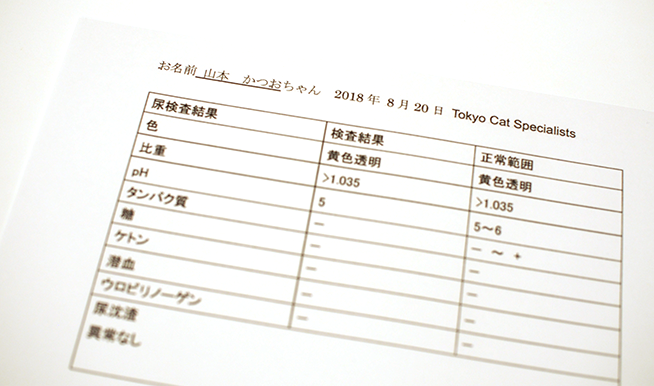 お名前 山本 かつおちゃん 2018年 8月20日 Tokyo Cat Specialists
尿検査結果 検査結果 正常範囲
色 黄色透明 黄色透明
比重 >1.035 >1.035
pH 5 5～6
タンパク質 － － ～ +
糖 － －
ケトン － －
潜血 － －
ウロビリノーゲン － －
尿沈渣
異常なし